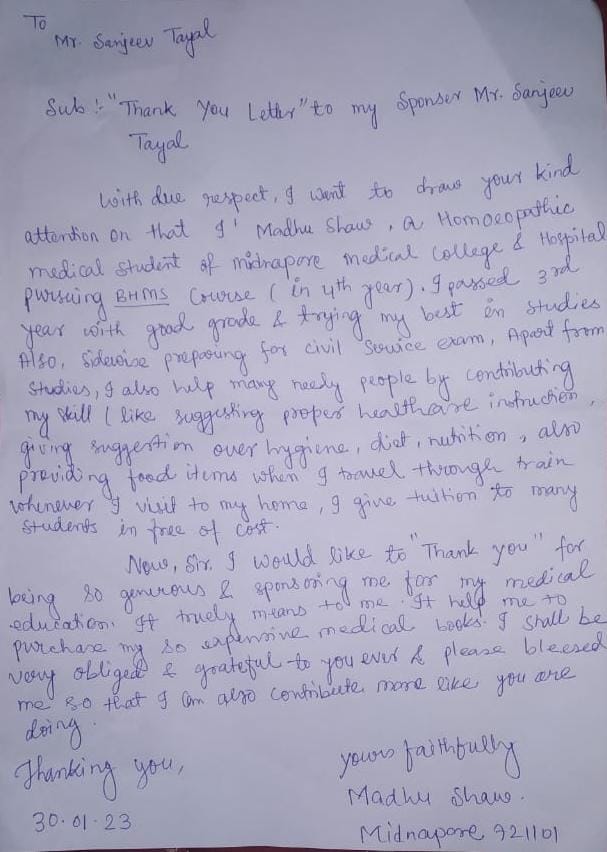 To
Mr. Sanjeev Tayal
Sub :- "Thank You Letter" to my Sponser Mr. Sanjeev
Tayal
With due respect, I want to draw your kind
attention on that I' Madhu Shaw, a Homoeopathic
medical student of midnapore medical college & Hospital
pursuing BHMS Course (in 4th year). I passed 3rd
year with good grade & trying my best in studies
Also, sidewise preparing for civil Service exam, Apart from
studies, I also help many needy people by contributing
my skill (like suggesting proper healthcare instruction,
giving suggestion over hygiene, diet, nutrition, also
providing food items when I travel through train
whenever I visit to my home, I give tuition to many
Students in free of cost.
Now, Sir. I would like to "Thank you" for
being so generous & sponsoring me for my medical
education. It truely means to me. It help me to
purchase my so expensive medical books. I shall be
very obliged & grateful to you ever & please bleesed
me so that I can also contribute more like you are
doing.
Thanking you,
yours faithfully
Madhu Shaw.
30.01.23
Midnapore 721101